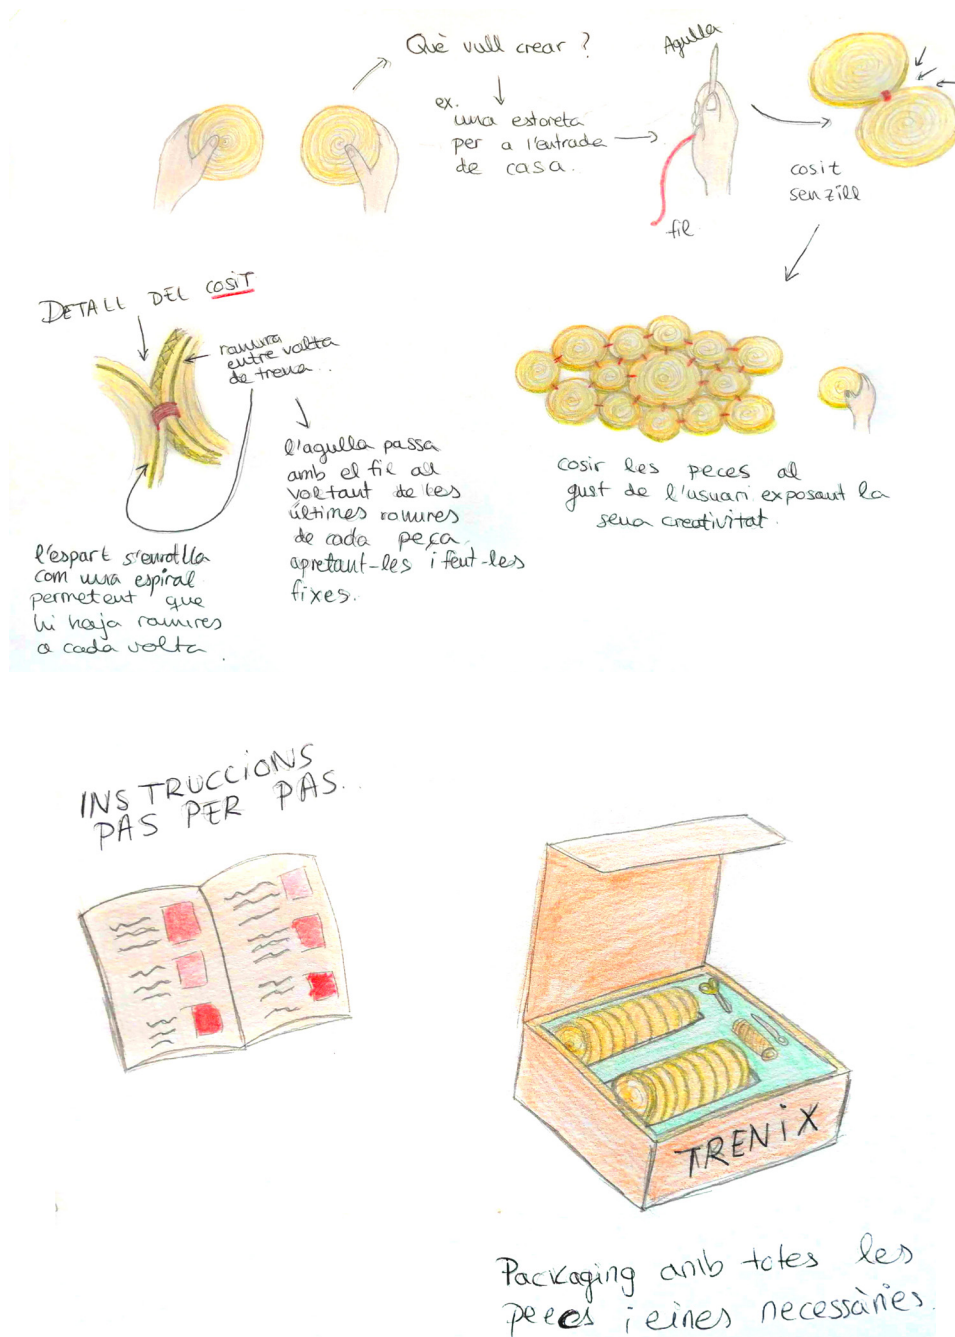 Què vull crear ?
ex.
una estoreta
per a l'entrada
de casa.
Agulla
fil
cosit
senzill
DETALL DEL COSIT
ranura
entre volta
de trena..
l'agulla passa
amb el fil al
voltant de les
últimes ranures
de cada peça
apretant-les i fent-les
fixes.
l'espart s'enrotlla
com una espiral
permetent que
hi haja ranures
a cada volta
cosir les peces al
gust de l'usuari exposant la
seua creativitat.
INSTRUCCIONS
PAS PER PAS..
TRENIX
Packaging amb totes les
peces i eines necessàries.